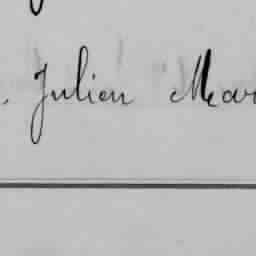 Julien Mar